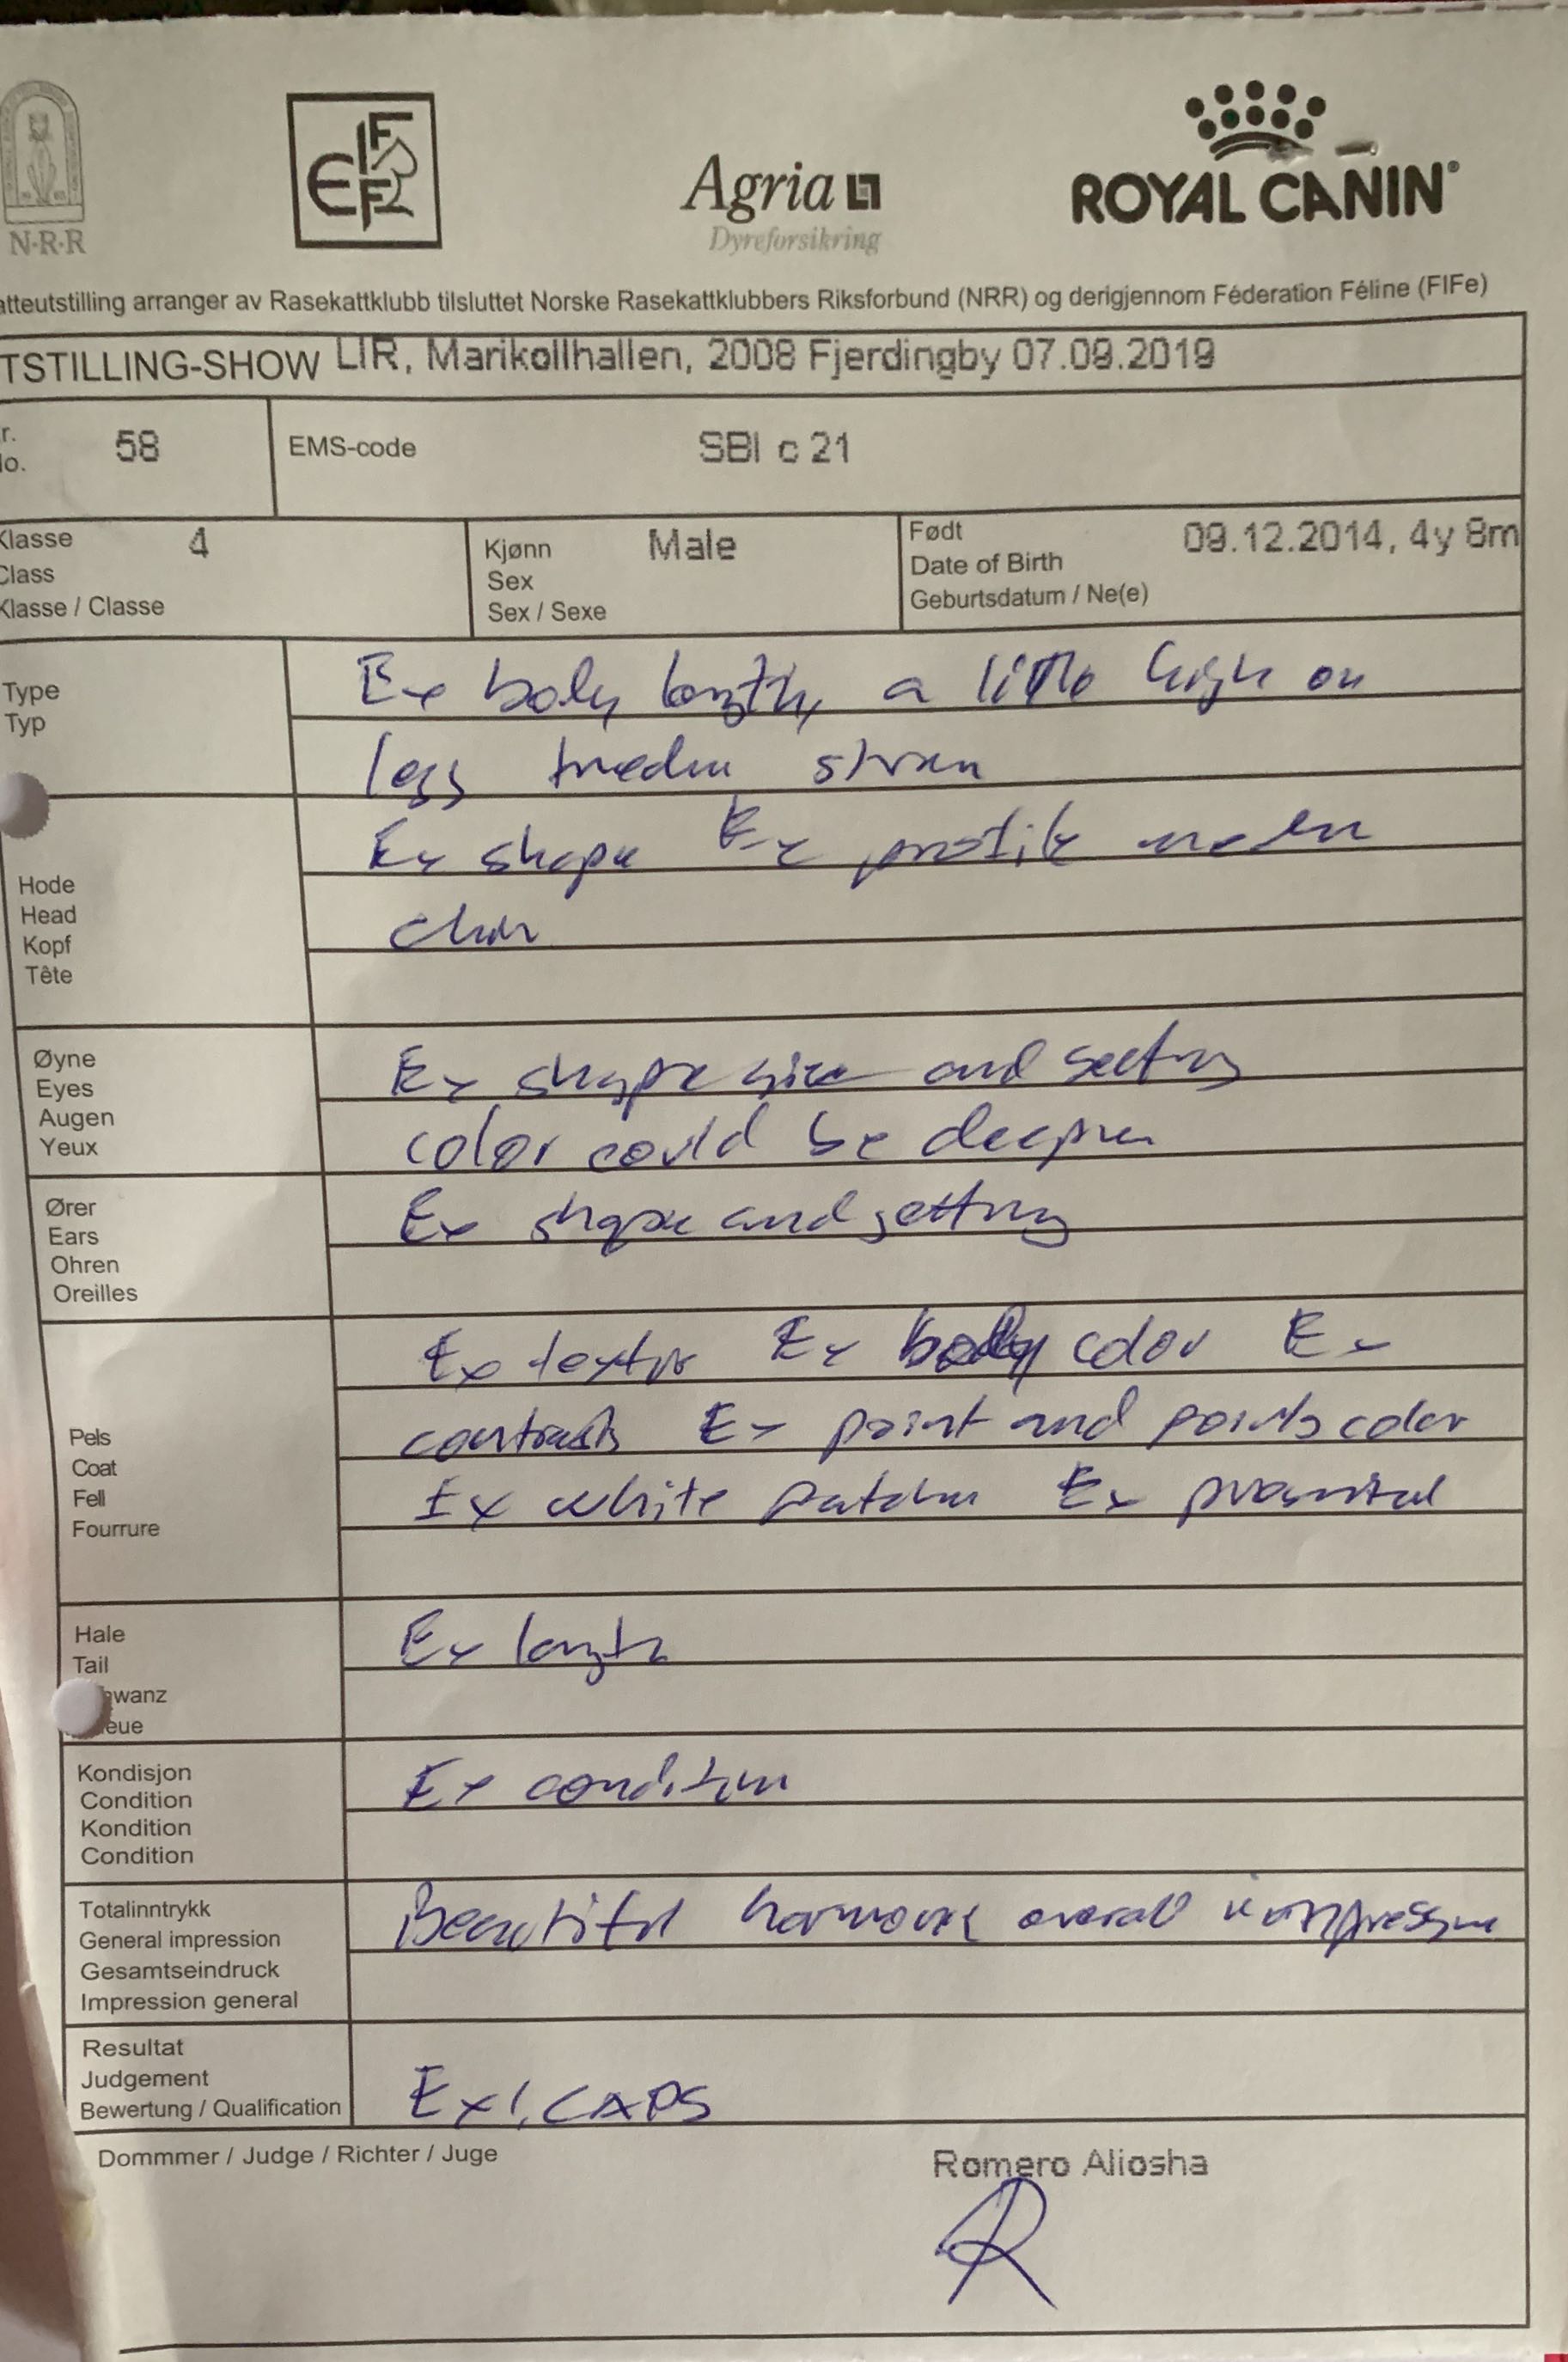 N·R·R
FIFE
Agria
Dyreforsikring
ROYAL CANIN
atteutstilling arranger av Rasekattklubb tilsluttet Norske Rasekattklubbers Riksforbund (NRR) og derigjennom Féderation Féline (FIFe)
TSTILLING-SHOW LIR, Marikollhallen, 2008 Fjerdingby 07.09.2019
r. 58 EMS-code SBI c 21
lo.
Klasse 4 Kjønn Male Født 09.12.2014, 4y 8m
Class Sex Date of Birth
Klasse / Classe Sex / Sexe Geburtsdatum / Ne(e)
Type
Typ
Ex body length, a little high on
legs
Hode
Head
Kopf
Tête
Ex shape Ex profile
chin
Øyne
Eyes
Augen
Yeux
Ex shape size and setting
color could be deeper
Ører
Ears
Ohren
Oreilles
Ex shape and setting
Pels
Coat
Fell
Fourrure
Ex texture Ex body color Ex
contrasts Ex point and points color
Ex white patches Ex
Hale
Tail
hwanz
eue
Ex length
Kondisjon
Condition
Kondition
Condition
Ex condition
Totalinntrykk
General impression
Gesamtseindruck
Impression general
Beautiful overall impression
Resultat
Judgement
Bewertung / Qualification
Ex1, CAPS
Dommmer / Judge / Richter / Juge Romero Aliosha